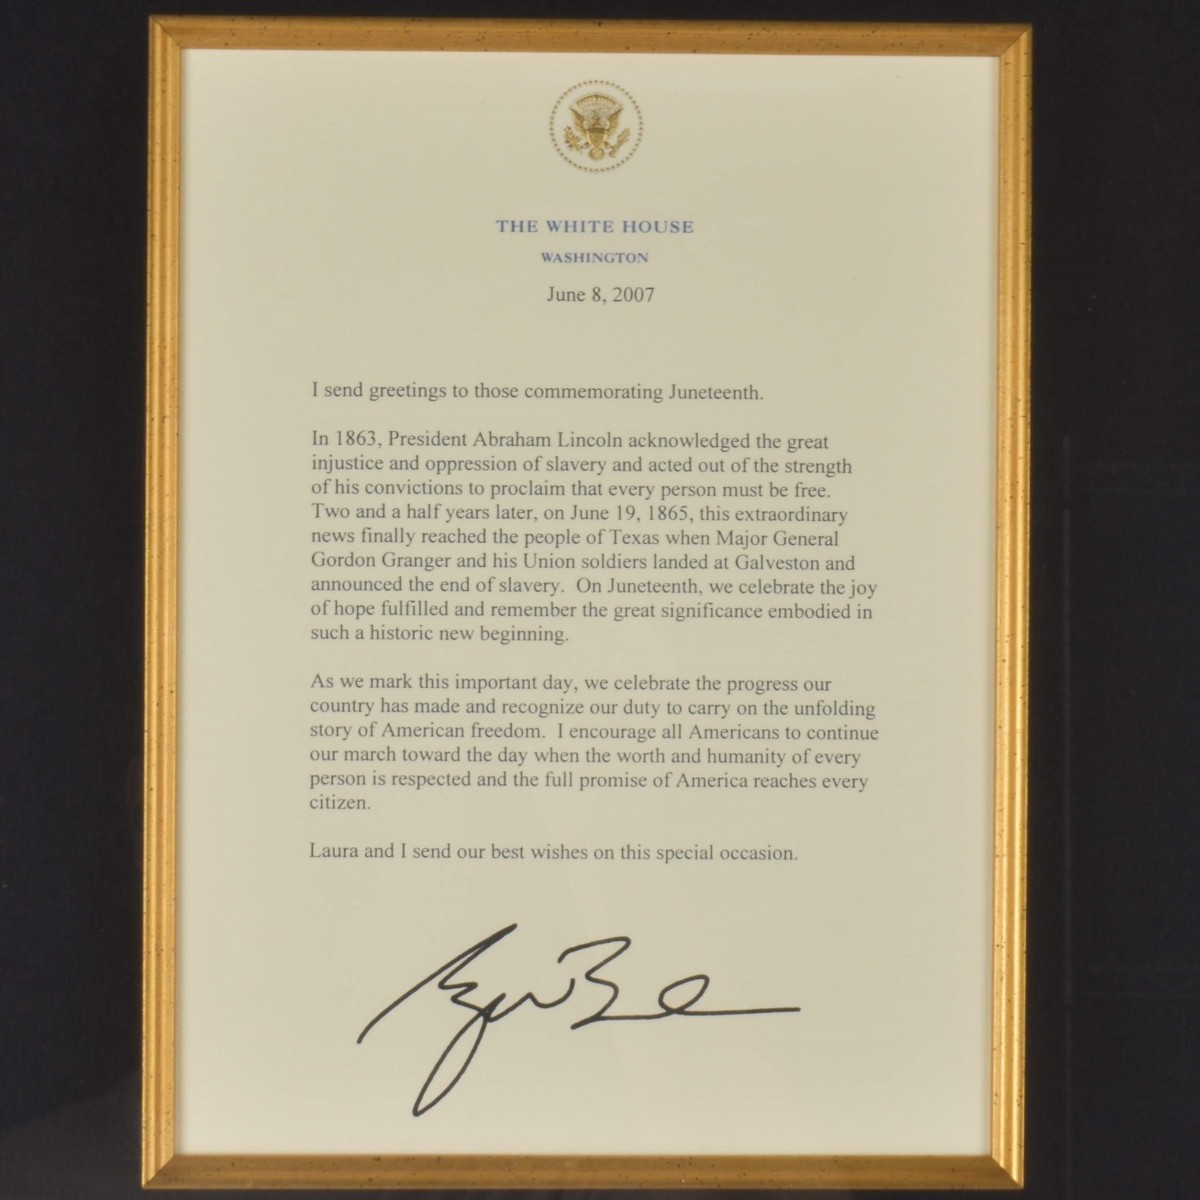 THE WHITE HOUSE
WASHINGTON
June 8, 2007
I send greetings to those commemorating Juneteenth.
In 1863, President Abraham Lincoln acknowledged the great
injustice and oppression of slavery and acted out of the strength
of his convictions to proclaim that every person must be free.
Two and a half years later, on June 19, 1865, this extraordinary
news finally reached the people of Texas when Major General
Gordon Granger and his Union soldiers landed at Galveston and
announced the end of slavery.  On Juneteenth, we celebrate the joy
of hope fulfilled and remember the great significance embodied in
such a historic new beginning.
As we mark this important day, we celebrate the progress our
country has made and recognize our duty to carry on the unfolding
story of American freedom.  I encourage all Americans to continue
our march toward the day when the worth and humanity of every
person is respected and the full promise of America reaches every
citizen.
Laura and I send our best wishes on this special occasion.